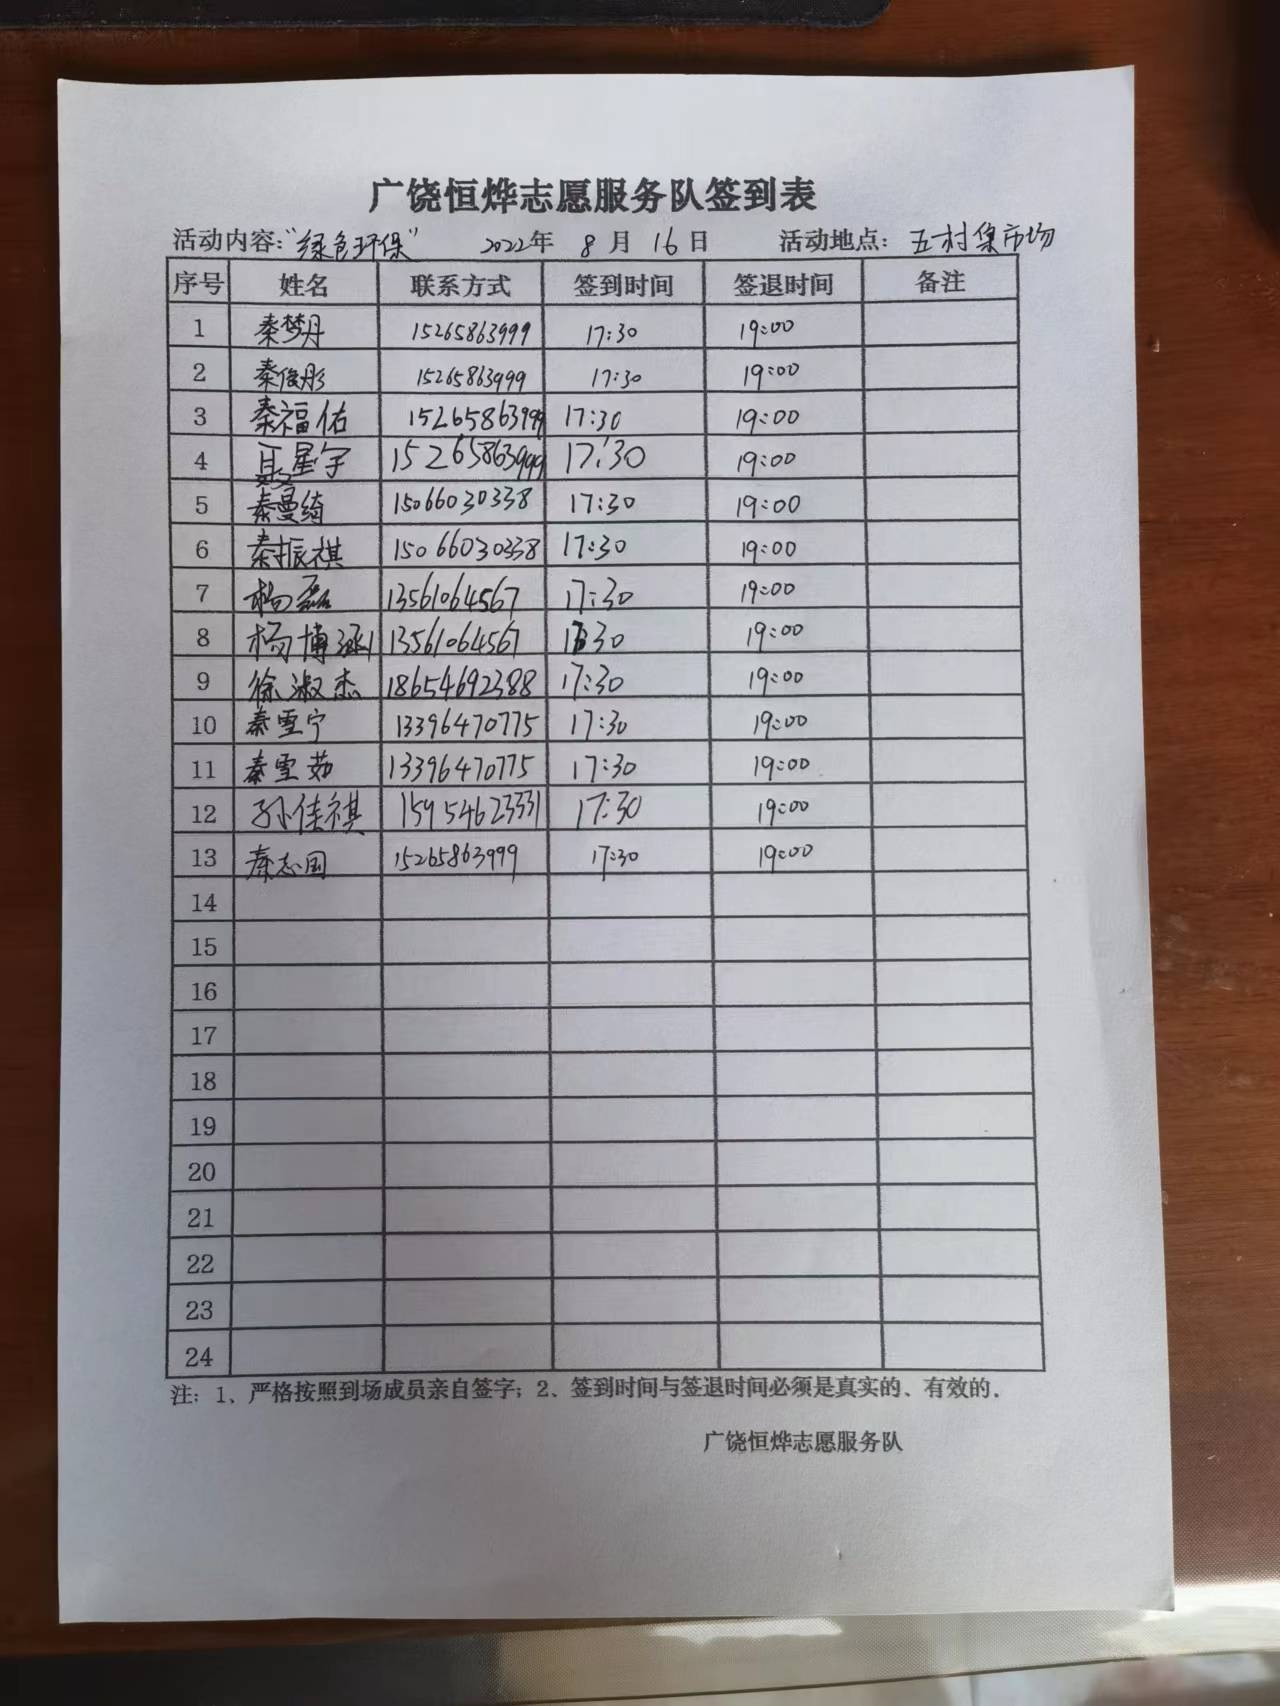 广饶恒烨志愿服务队签到表
活动内容："绿色环保" 2022年 8月16日 活动地点：五村集市场
序号 姓名 联系方式 签到时间 签退时间 备注
1 秦梦丹 15265863999 17:30 19:00
2 秦俊彤 15265863999 17:30 19:00
3 秦福佑 15265863999 17:30 19:00
4 聂星宇 15265863999 17:30 19:00
5 秦曼绮 15066030338 17:30 19:00
6 秦振祺 15066030338 17:30 19:00
7 杨磊 13561064567 17:30 19:00
8 杨博涵 13561064567 17:30 19:00
9 徐淑杰 18654692388 17:30 19:00
10 秦雪宁 13396470775 17:30 19:00
11 秦雪茹 13396470775 17:30 19:00
12 孙佳祺 15954623331 17:30 19:00
13 秦志国 15265863999 17:30 19:00
14
15
16
17
18
19
20
21
22
23
24
注：1、严格按照到场成员亲自签字；2、签到时间与签退时间必须是真实的、有效的.
广饶恒烨志愿服务队